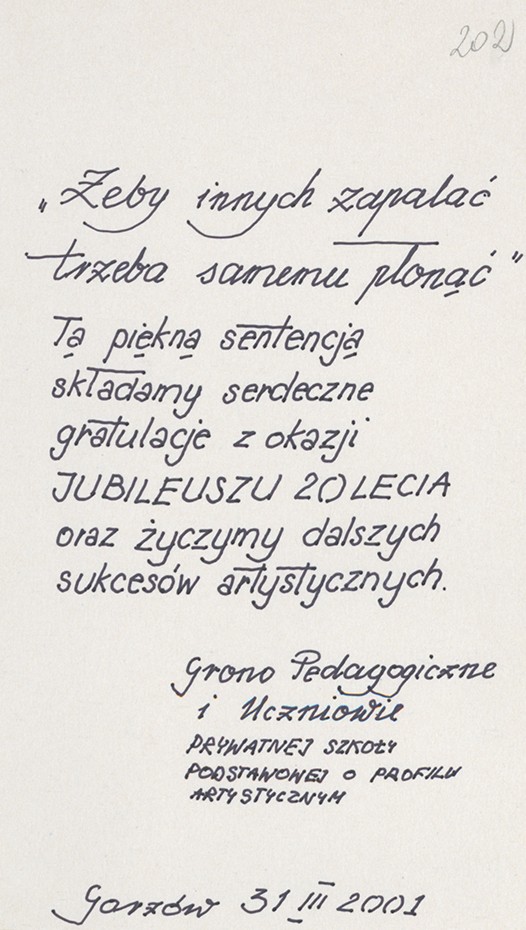 202
„Żeby innych zapalać
trzeba samemu płonąć"
Tą piękną sentencją
składamy serdeczne
gratulacje z okazji
JUBILEUSZU 20LECIA
oraz życzymy dalszych
sukcesów artystycznych.
Grono Pedagogiczne
i Uczniowie
PRYWATNEJ SZKOŁY
PODSTAWOWEJ O PROFILU
ARTYSTYCZNYM
Gorzów 31 III 2001